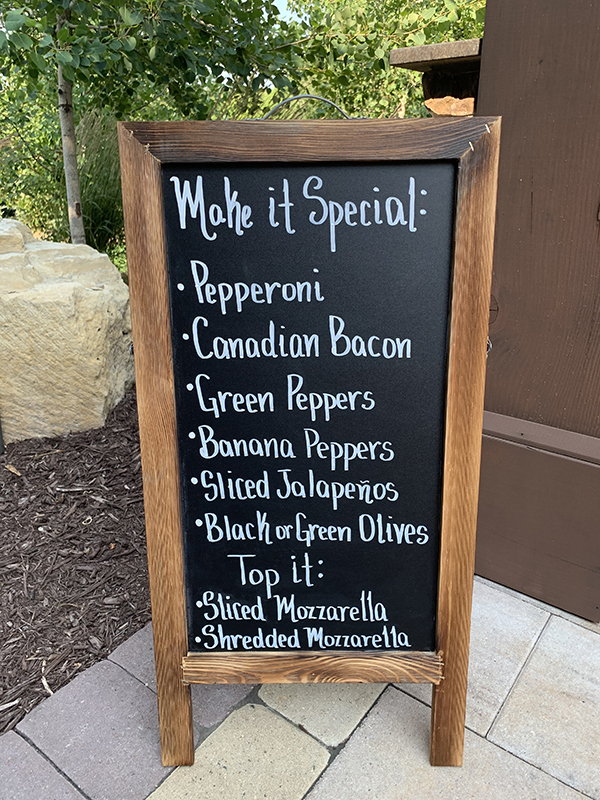 Make it Special:
• Pepperoni
• Canadian Bacon
• Green Peppers
• Banana Peppers
• Sliced Jalapeños
• Black or Green Olives
Top it:
• Sliced Mozzarella
• Shredded Mozzarella